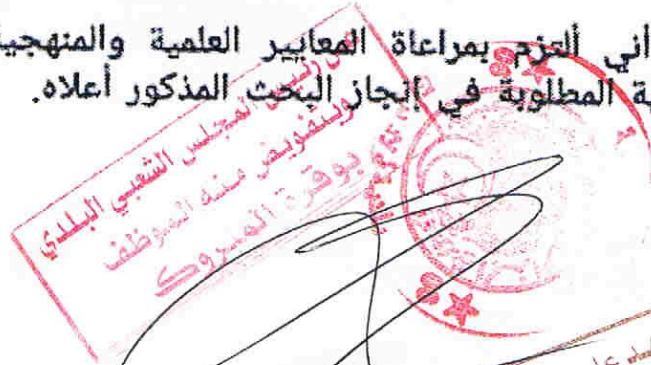 أني ألتزم بمراعاة المعايير العلمية والمنهجية
المطلوبة في إنجاز البحث المذكور أعلاه.
عن رئيس المجلس الشعبي البلدي
وبتفويض منه الموظف
بوقرة المبروك